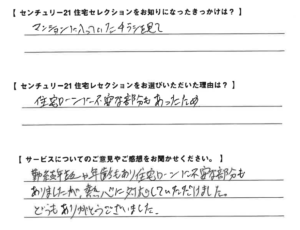 【 センチュリー21 住宅セレクションをお知りになったきっかけは？ 】
マンションに入っていたチラシを見て
【 センチュリー21 住宅セレクションをお選びいただいた理由は？ 】
住宅ローンに不安な部分もあったため
【 サービスについてのご意見やご感想をお聞かせください。 】
年齢もあり住宅ローンに不安な部分も
ありましたが、熱心に対応していただけました。
どうもありがとうございました。